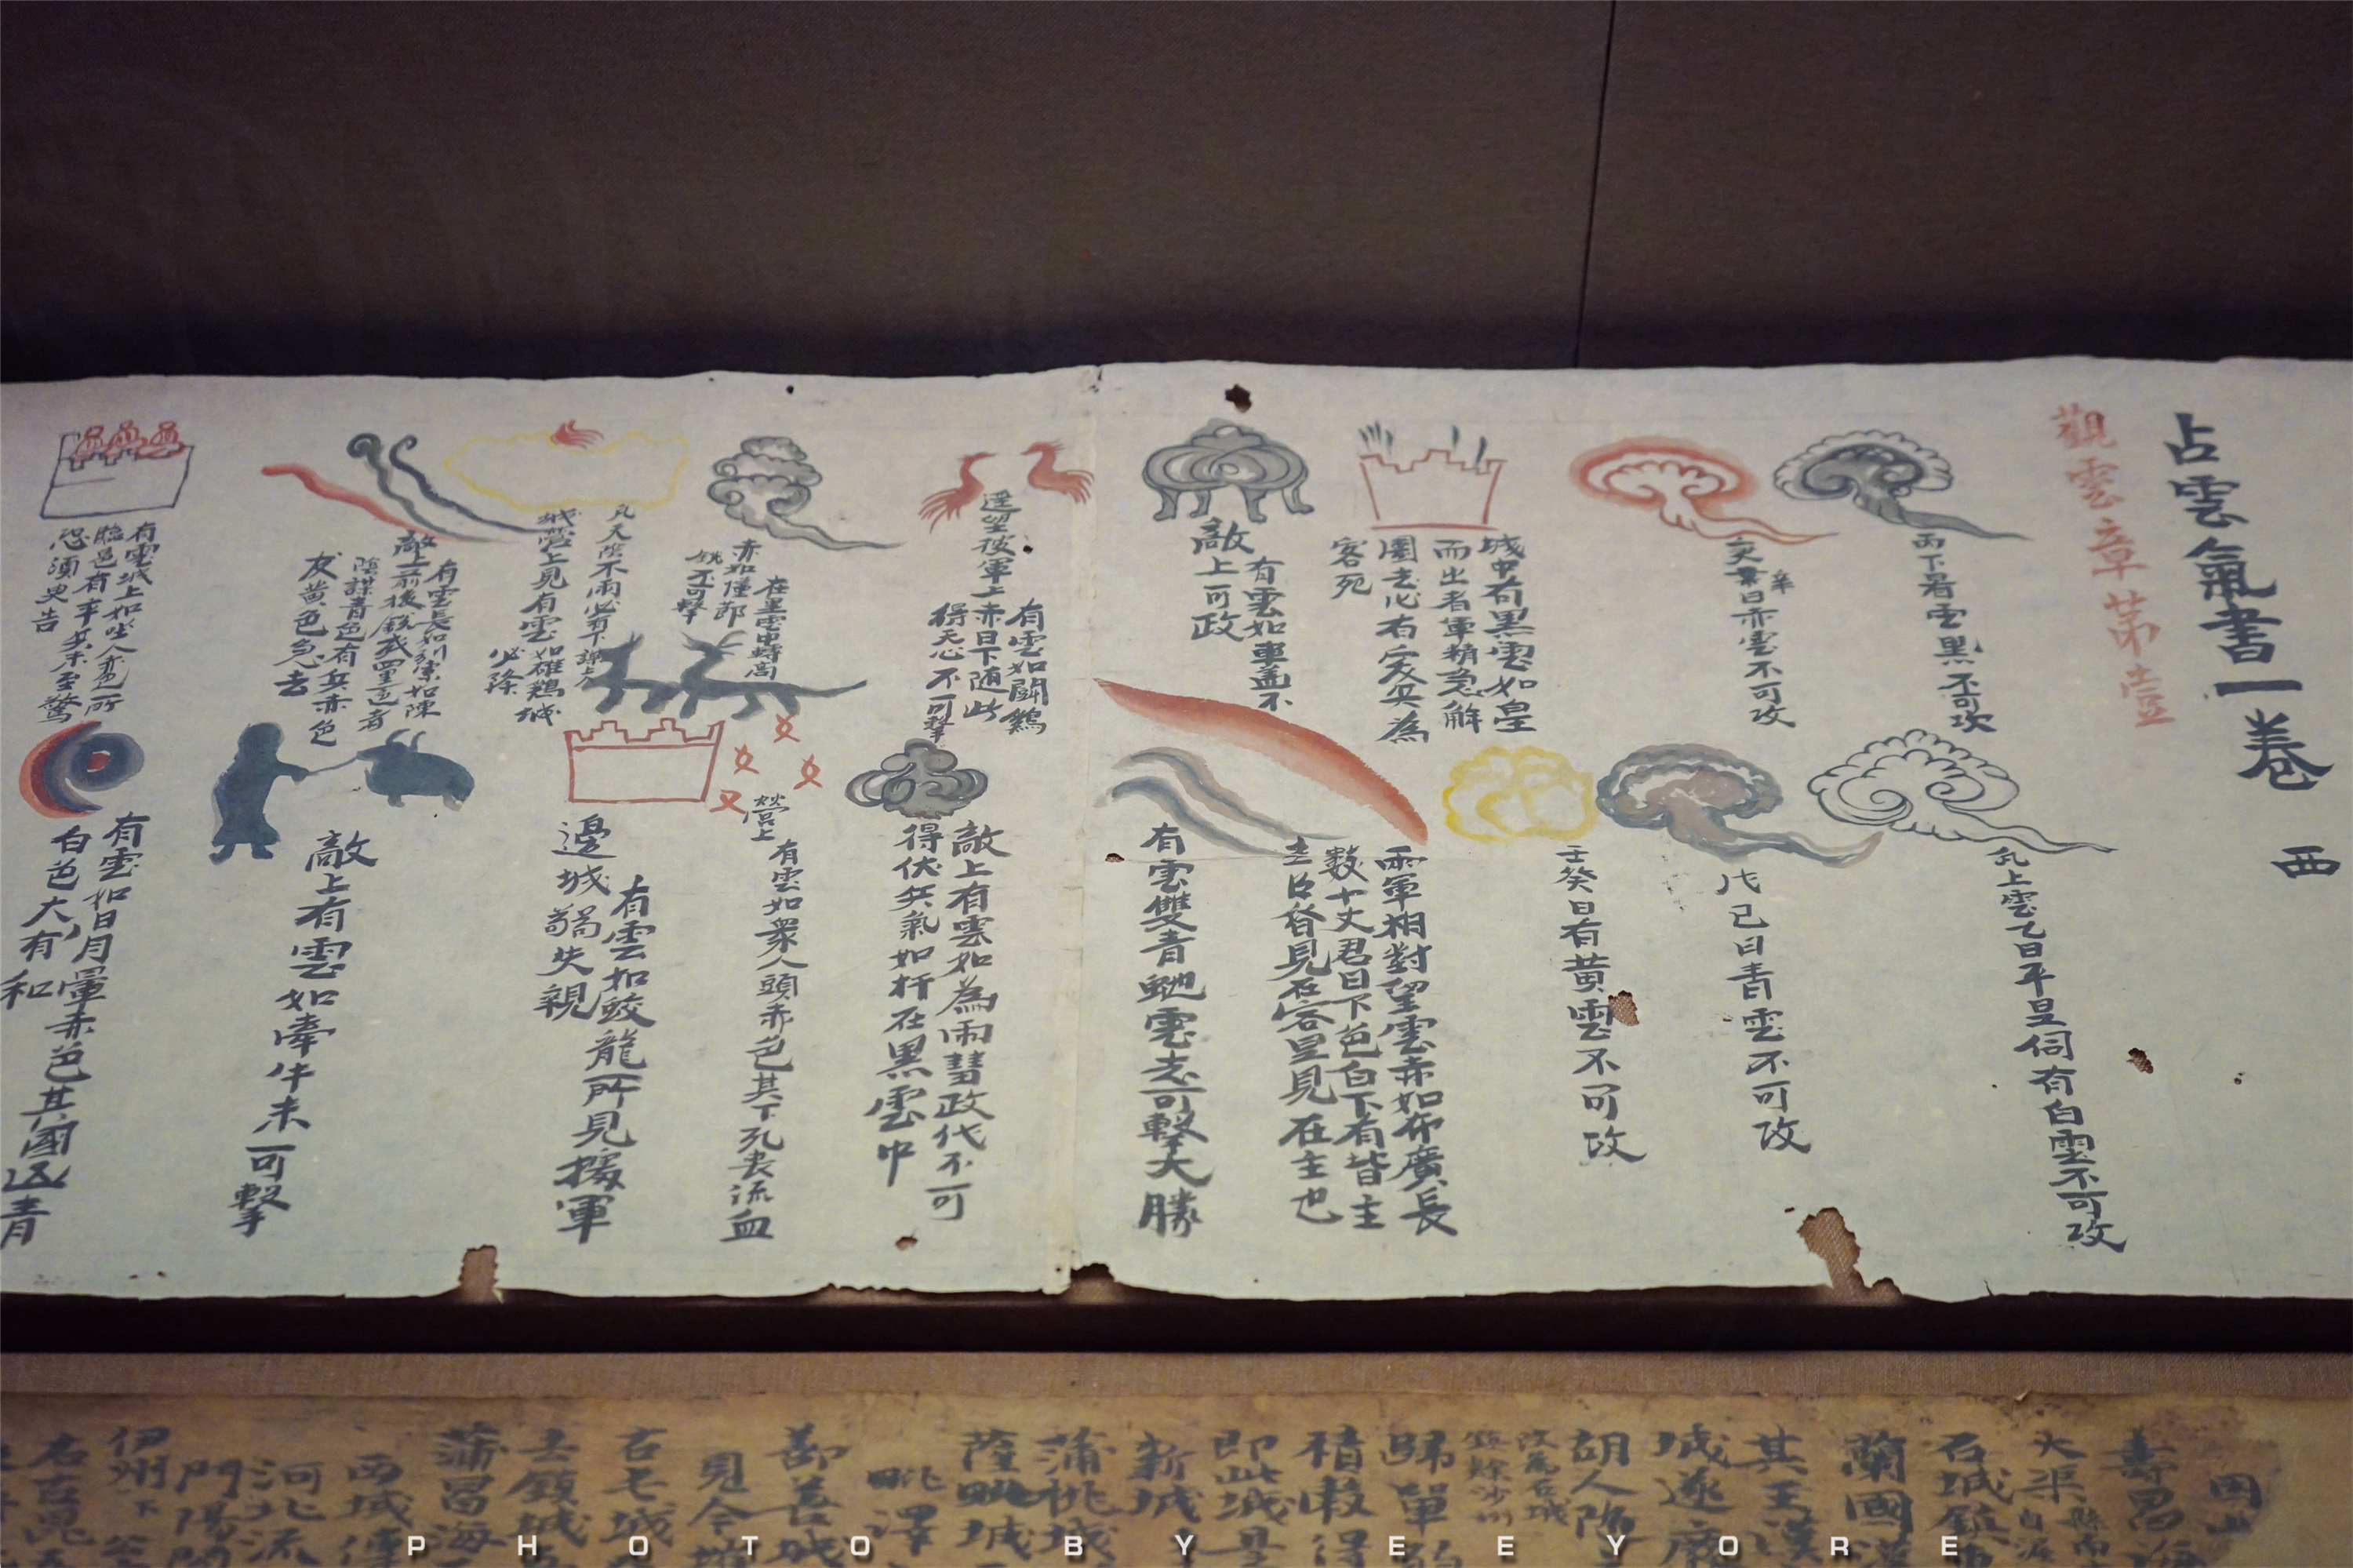 占雲氣書一卷 西
觀雲章苐壹
丙丁暑雲黑不可攻
凡上雲乙日平旦伺有白雲不可攻
日赤雲不可攻
戊己日青雲不可攻
壬癸日有黄雲不可攻
城中有黑雲如星
而出者軍精急解
圍去必有突兵為
客死
兩軍相對望雲赤如布廣長
數十丈君日下色白下有皆主
見在客星見在主也
有雲如車盖不
敵上可政
有雲雙青虵雲走可擊大勝
有雲如鬪鷄
遥望彼軍上赤日下随此
得天心不可擊
敵上有雲如為雨彗政代不可
得伏兵氣如杵在黑雲中
在黑雲中時高
赤如僮節
不可擊
有雲如衆人頭赤色其下死丧流血
營上
凡天陰不雨必有下謀上
城營上見有雲如雄鷄城
必降
有雲如蛟龍所見援軍
邊城 失親
有雲長如引索如陳
敵上前後銳或四五者
陰謀青色有兵赤色
友黄色急去
敵上有雲如牽牛未可擊
有雲城上如坐人赤色所
臨邑有卒兵未至驚
恐須臾告
有雲如日月暈赤色其國凶青
白色大有和
壽昌
大渠
石城鎮
蘭國漢
其王漢
城遂廢
胡人隋
歸單
積敗得
即此城是
新城
蒲桃城
薩毗城
毗澤
鄯善城
見今
古屯城
去鎮城
蒲昌海
西城傳
河北流
門陽關
伊州下
PHOTO BY EEYORE